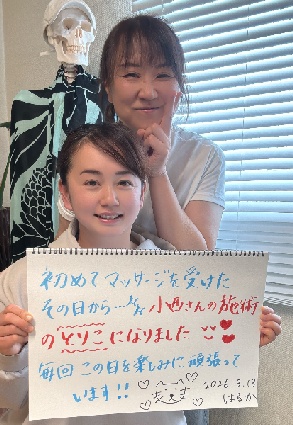 初めてマッサージを受けた
その日から…小西さんの施術
のとりこになりました
毎回この日を楽しみに頑張って
います!! 2026.3.13
はるか